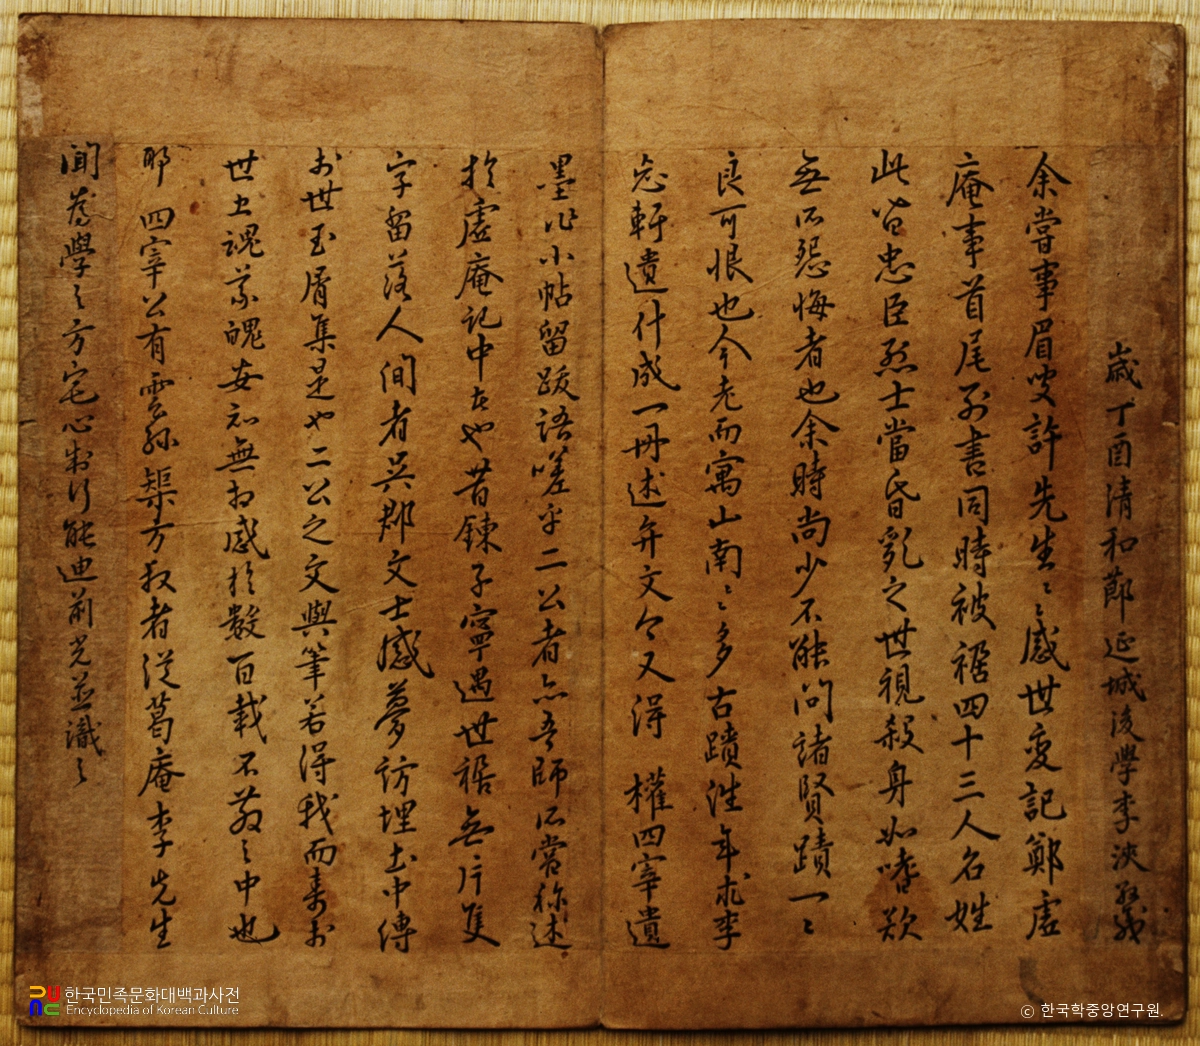 歲丁酉清和節延城後學李浹
余嘗事眉叟許先生〻感世变記鄭虛
庵事首尾列書同時被禍四十三人名姓
此皆忠臣烈士當昏亂之世視殺身如嗜欲
無所怨悔者也余時尚少不能问諸賢蹟一〻
良可恨也今老而寓山南〻多古蹟往年求李
忘軒遺什成一冊述弁文今又得 權四宰遺
墨作小帖留跋語嗟乎二公者亦吾師所嘗称述
於虛庵記中者也昔鍊子寧遇世禍無片隻
字留落人间者吳郡文士感夢訪埋土中傳
於世玉屑集是也二公之文與筆若得我而壽於
世土魂魄安知無相感於數百載不之中也
耶 四宰公有雲孫榘方叔者從葛庵李先生
聞爲學之方宅心制行能迪前光並識之
한국민족문화대백과사전
Encyclopedia of Korean Culture
ⓒ 한국학중앙연구원.